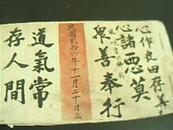 心作良田存善
心諸惡莫
衆善奉行
民國拾六年十一月二十日立
道氣常
存人間